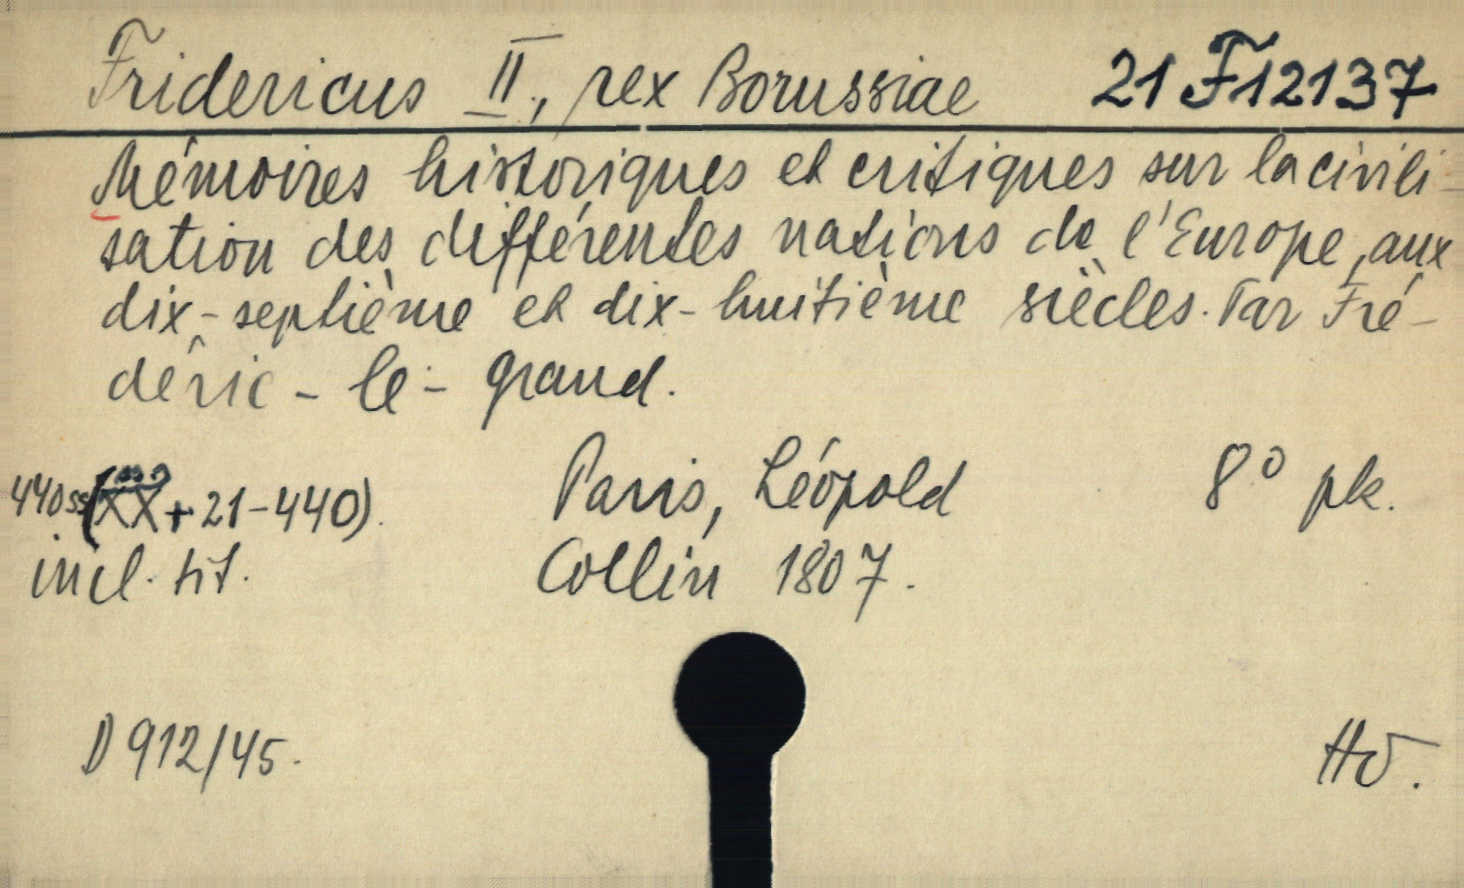 Fridericus II., rex Borussiae 21 F12137
Mémoires historiques et critiques sur la civili-
sation des différentes nations de l'Europe, aux
dix-septième et dix-huitième siècles. Par Fré-
déric-le-grand.
440 ss (XX + 21-440). Paris, Léopold 8° pk.
incl. tit. Collin 1807.
D 912/45.